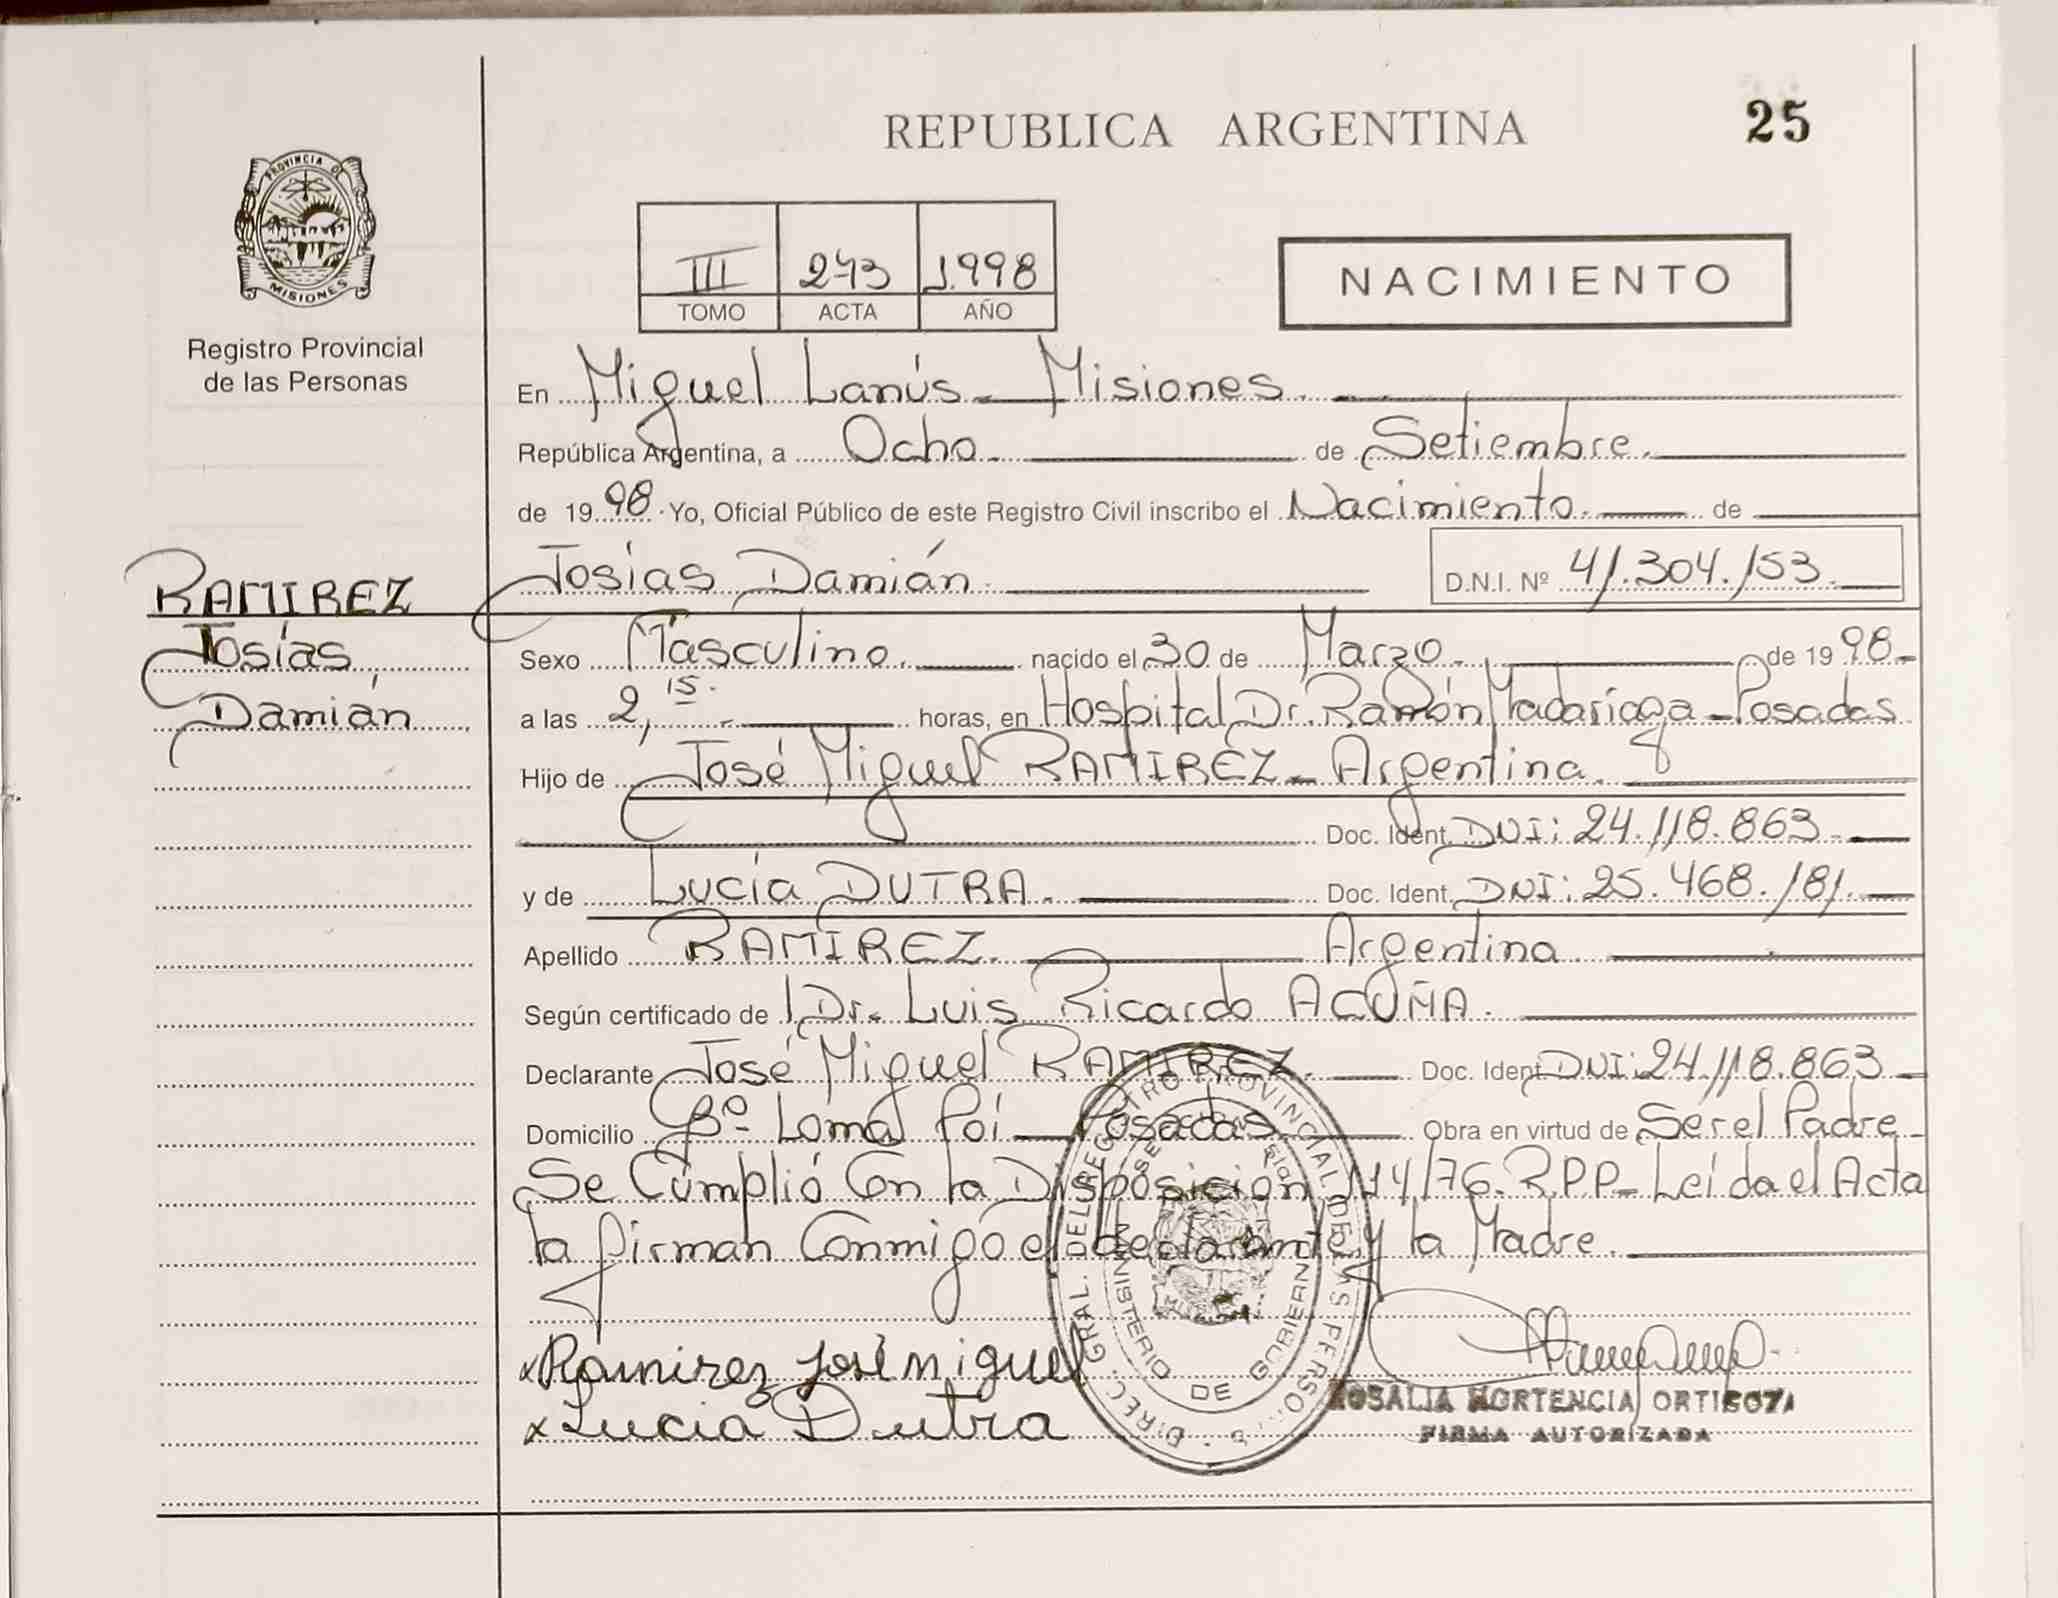 REPUBLICA ARGENTINA
25
PROVINCIA D
MISIONES
Registro Provincial
de las Personas
III 273 1998
TOMO ACTA AÑO
NACIMIENTO
En Miguel Lanús - Misiones.
República Argentina, a Ocho. de Setiembre.
de 1998 Yo, Oficial Público de este Registro Civil inscribo el Nacimiento. de
RAMIREZ
Josías
Damián
Josías Damián. D.N.I. Nº 41.304.153.
Sexo Masculino. nacido el 30 de Marzo. de 1998-
a las 2,15. horas, en Hospital Dr. Ramón Madariaga - Posadas
Hijo de José Miguel RAMIREZ - Argentina.
Doc. Ident. DNI: 24.118.863.
y de Lucía DUTRA. Doc. Ident. DNI: 25.468.181.
Apellido RAMIREZ. Argentina
Según certificado de Dr. Luis Ricardo ACUÑA.
Declarante José Miguel RAMIREZ. Doc. Ident. DNI: 24.118.863
Domicilio Bº Loma Poí - Posadas. Obra en virtud de Ser el Padre
Se Cumplió Con la Disposición 114/76. R.P.P- Leída el Acta
la firman Conmigo el declarante y la Madre.
x Ramirez José Miguel
x Lucia Dutra
DIREC. GRAL. DEL REGISTRO PROVINCIAL DE LAS PERSO
MINISTERIO DE GOBIERN
ROSALIA HORTENCIA ORTIGOZA
FIRMA AUTORIZADA